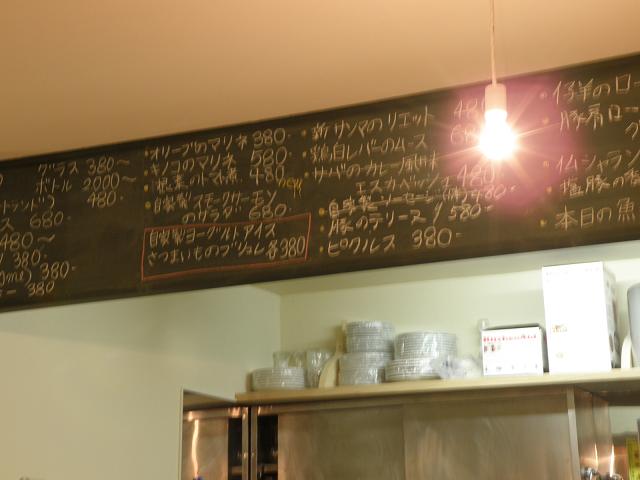 グラス 380〜
ボトル 2000〜
480.
ス 680
480〜
380.
380.
ー 380
・オリーブのマリネ 380.
・キノコのマリネ 580
・根菜のトマト煮 480
new
・自家製スモークサーモン
のサラダ 680
自家製ヨーグルトアイス
さつまいものブリュレ各380
・新サンマのリエット 480
・鶏白レバーのムース
・サバのカレー風味
エスカベッシュ 480
・自家製ソーセージ
・豚のテリーヌ 580
・ピクルス 380.
・仔羊のロー
・豚肩ロー
・イムシャラン
・塩豚の
・本日の魚
KitchenAid